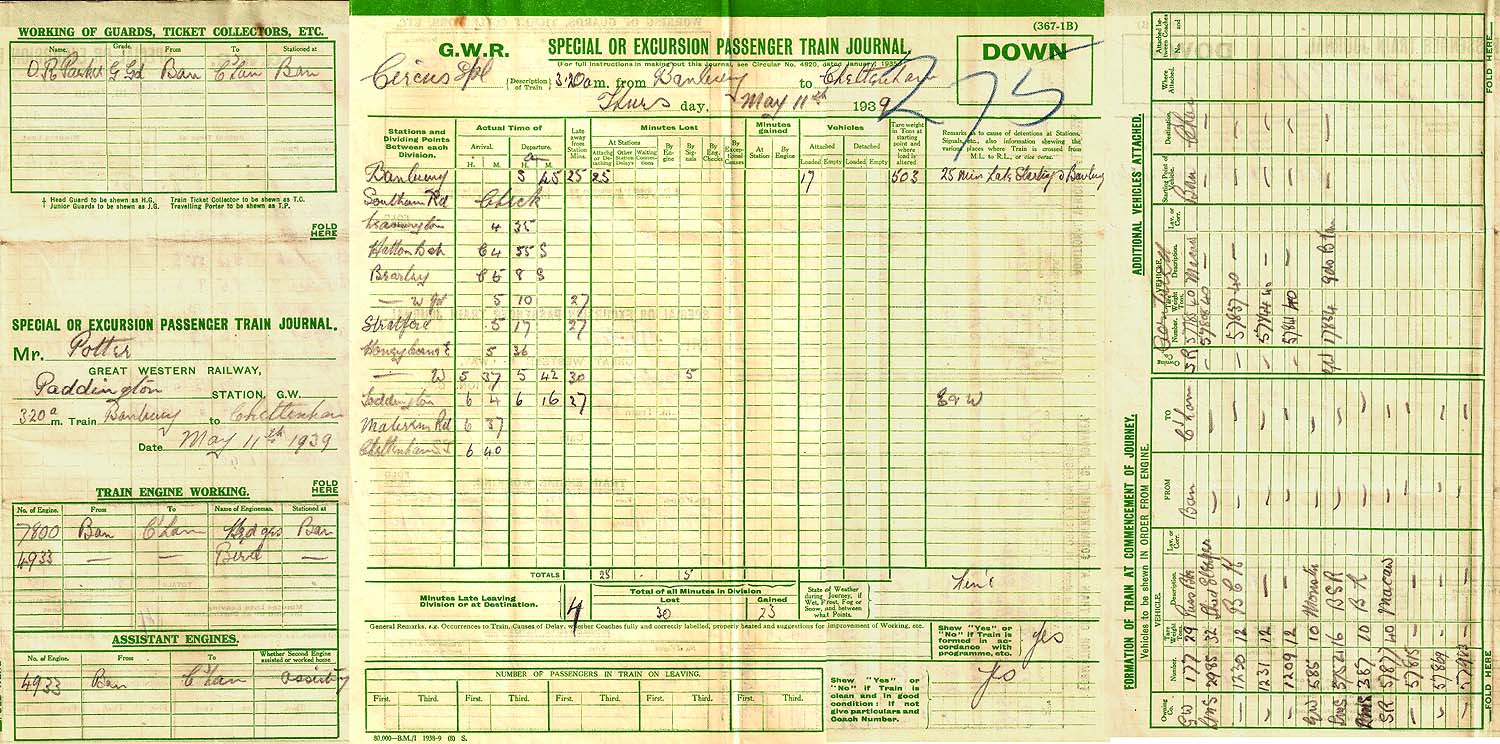 WORKING OF GUARDS, TICKET COLLECTORS, ETC.
Name. Grade. From To Stationed at
Parker G Gd Ban C'ham Ban
‡ Head Guard to be shewn as H.G. Train Ticket Collector to be shewn as T.C.
Junior Guards to be shewn as J.G. Travelling Porter to be shewn as T.P.
FOLD HERE
SPECIAL OR EXCURSION PASSENGER TRAIN JOURNAL.
Mr. Potter
GREAT WESTERN RAILWAY,
Paddington STATION, G.W.
3.20 a m. Train Banbury to Cheltenham
Date May 11th 1939
FOLD HERE
TRAIN ENGINE WORKING.
No. of Engine. From To Name of Engineman. Stationed at
7800 Ban C'ham Hedges Ban
4933 — — Bird —
ASSISTANT ENGINES.
No. of Engine. From To Whether Second Engine assisted or worked home
4933 Ban C'ham Assisting
(367-1B)
G.W.R. SPECIAL OR EXCURSION PASSENGER TRAIN JOURNAL. DOWN
(For full instructions in making out this journal, see Circular No. 4920, dated January, 1935)
Circus Spl (Description of Train) 3.20 a.m. from Banbury to Cheltenham
Thurs day, May 11th 1939
275
Stations and Dividing Points Between each Division.
Actual Time of
Arrival. Departure.
H. M. H. M.
Late away from Station Mins.
Minutes Lost
At Stations
Attaching or Detaching Other Station Delays Waiting Connections
By Engine By Signals By Eng. Checks By Exceptional Causes
Minutes gained
At Station By Engine
Vehicles
Attached Detached
Loaded Empty Loaded Empty
Tare weight in Tons at starting point and where load is altered
Remarks as to cause of detentions at Stations, Signals, etc., also information shewing the various places where Train is crossed from M.L. to R.L., or vice versa.
Banbury 3 45 25 25 17 503 25 Mins Late Starting @ Banbury
Southam Rd Check
Leamington 4 35
Hatton Bch C 4 55 S
Bearley C 5 8 S
— W Jct 5 10 27
Stratford 5 17 27
Honeybourne E 5 36
— W 5 37 5 42 30 5
Toddington 6 4 6 16 27 E & W
Malvern Rd 6 37
Cheltenham 6 40
TOTALS 25 . 5
Minutes Late Leaving Division or at Destination. 4
Total of all Minutes in Division
Lost Gained
30 23
State of Weather during Journey, if Wet, Frost, Fog or Snow, and between what Points.
General Remarks, e.g. Occurrences to Train, Causes of Delay, whether Coaches fully and correctly labelled, properly heated and suggestions for Improvement of Working, etc.
Shew "Yes" or "No" if Train is formed in accordance with programme, etc. Yes
NUMBER OF PASSENGERS IN TRAIN ON LEAVING.
First. Third. First. Third. First. Third. First. Third. First. Third.
Shew "Yes" or "No" if Train is clean and in good condition: If not give particulars and Coach Number. Yes
80,000—B.M./1 1938-9 (8) S.
ADDITIONAL VEHICLES ATTACHED.
VEHICLE
Owning Co. Number. Tare Weight Tons. Description. Lav. or Corr. Starting Point of Vehicle. Destination. Where Attached. Attached between Coaches No. and
S.R 57785 40 Ban Chel
— 57808 40 — — —
— 57837 40 —
57844 40
57841 40
GW 17834
FOLD HERE
FORMATION OF TRAIN AT COMMENCEMENT OF JOURNEY.
Vehicles to be shewn IN ORDER FROM ENGINE.
VEHICLE.
Owning Co. Number. Tare Weight Tons. Description. Lav. or Corr. FROM TO
GW 177 29 Ban C'ham
LMS 2985 32 Third Sleeper
— 1230 12 B C K
— 1231 12 —
— 1209 12 —
GW 585 10 Monster
LMS 37221 16 B S R
LMS 387 10 B K
SR 57877 40 Macaw
— 57815 —
— 57869 —
— 57983 —
FOLD HERE